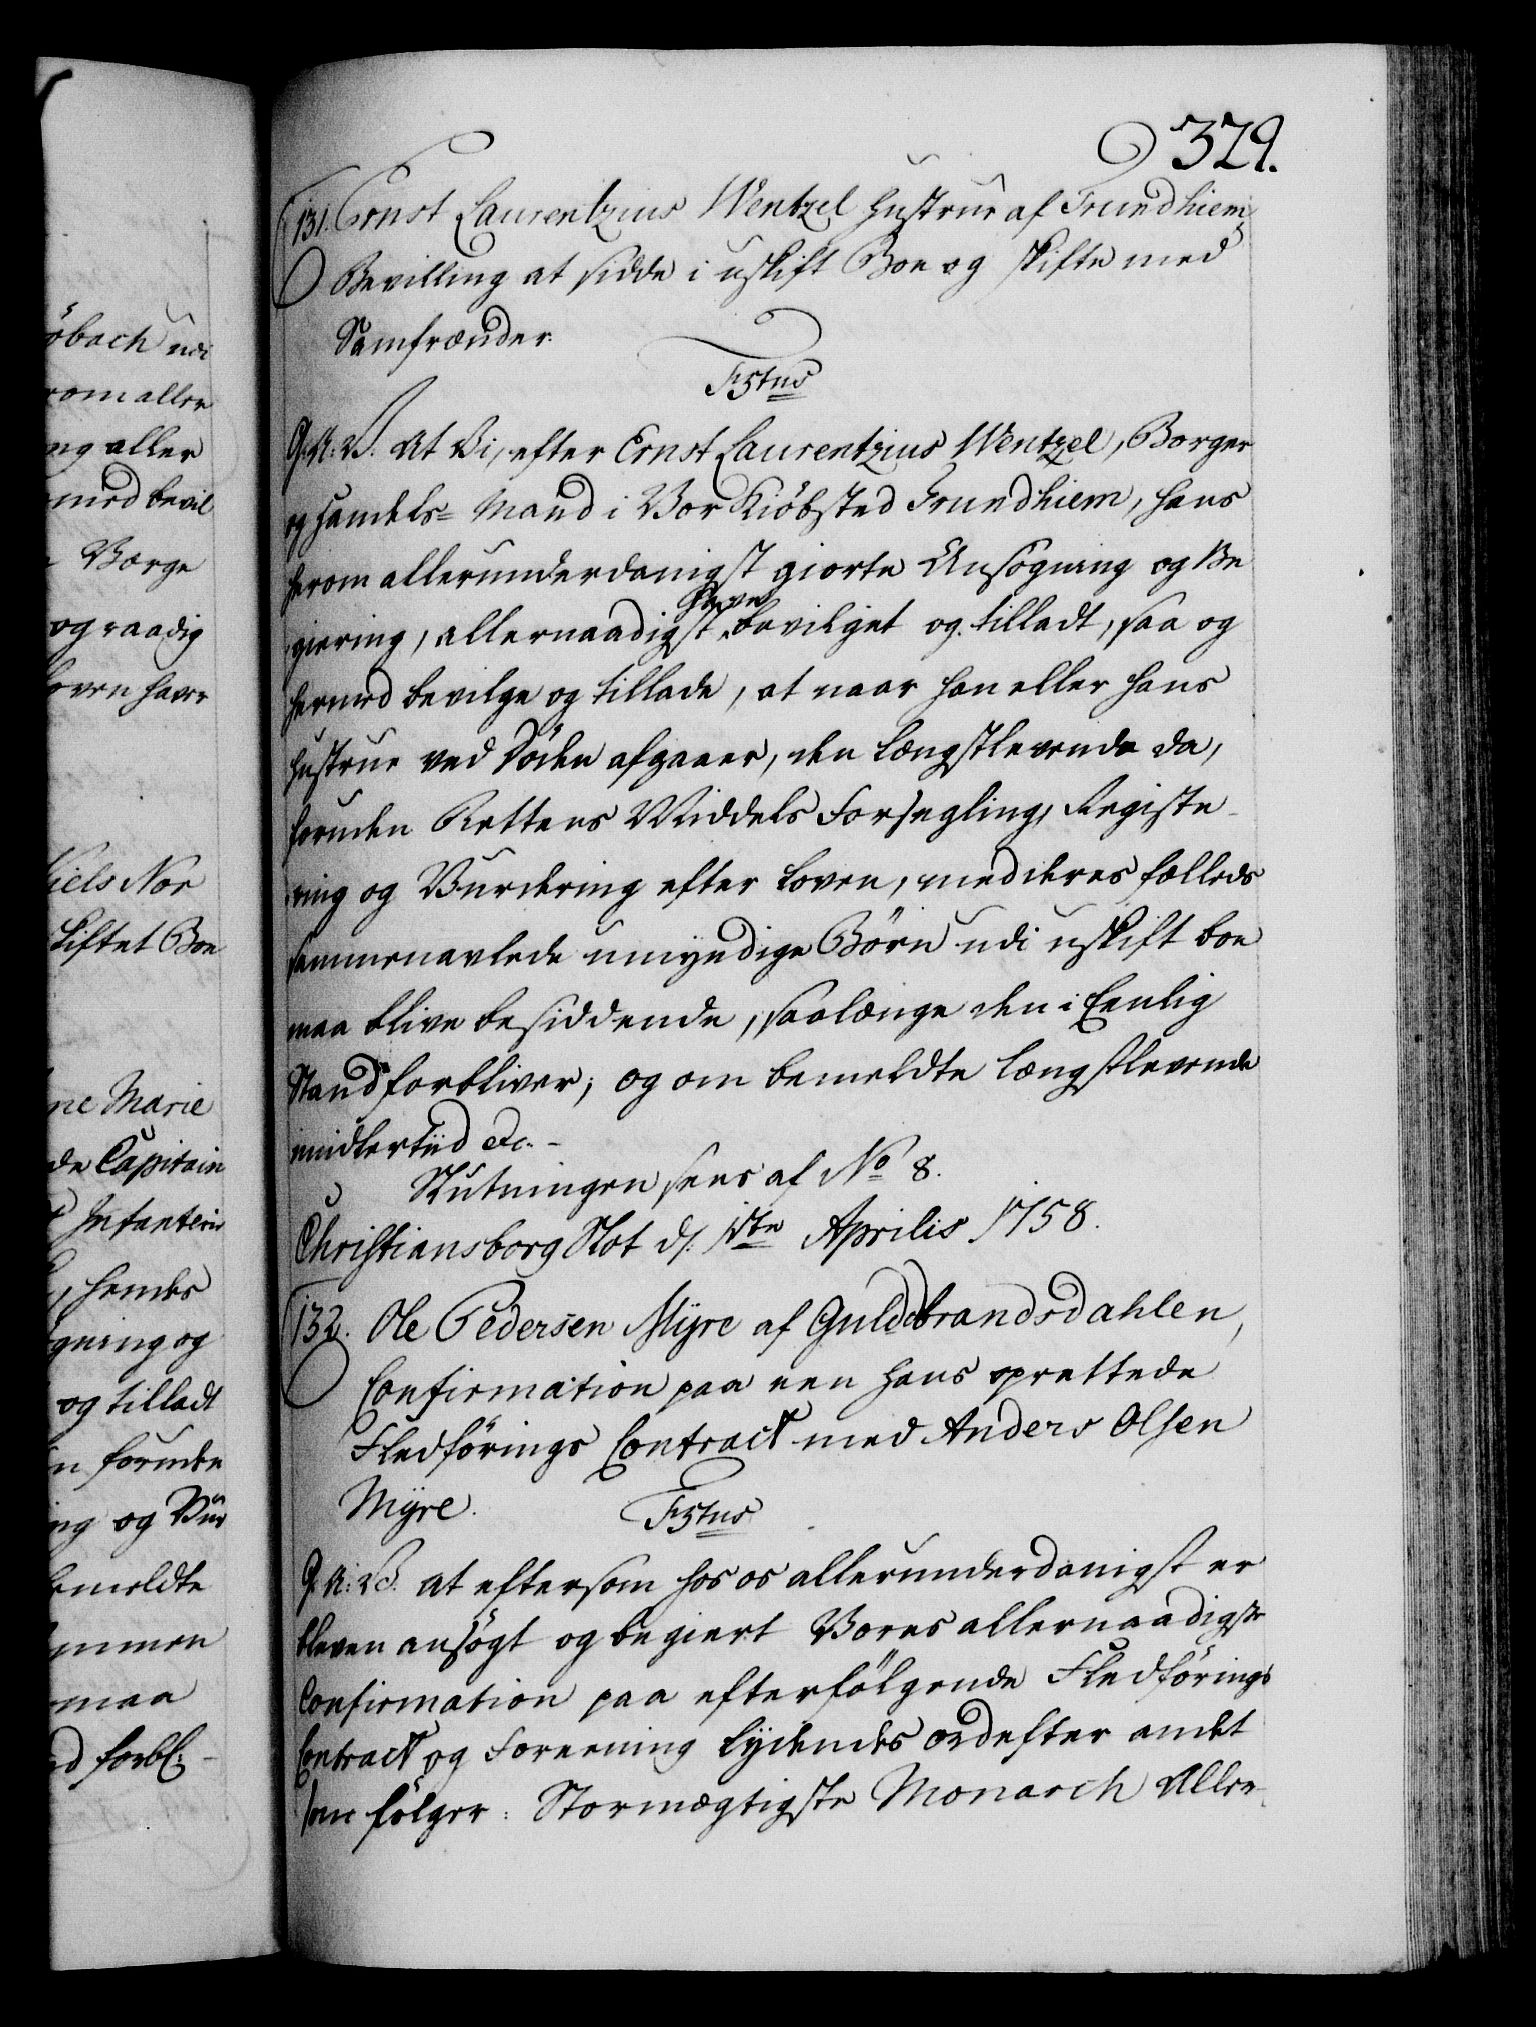 329.
131. Ernst Laurentzius Wentzel Hustrue af Trundhiem
Bevilling at sidde i uskift Boe og skifte med
Samfrænder.
F5tus
G: A: V: At Vi, efter Ernst Laurentzius Wentzel, Borger
og Handels-Mand i Vor Kiöbsted Trundhiem, hans
herom allerunderdanigst giorte Ansögning og Be
giering, allernaadigst have bevilget og tilladt, saa og
hermed bevilge og tillade, at naar han eller hans
Hustrue ved Döden afgaaer, den længstlevende da,
foruden Rettens Middels Forsegling, Registe-
ring og Vurdering efter Loven, med deres fælleds
sammenavlede umyndige Börn udi uskift boe
maa blive besiddende, saalænge den i Eenlig
Stand forbliver; og om bemeldte længstlevende
imidlertiid &c. -
Slutningen sees af No 8.
Christiansborg Slot d. Aprilis 1758.
132. Ole Pedersen Myre af Guldbrandsdahlen,
Confirmation paa een hans oprettede
Fledförings Contract med Anders Olsen
Myre.
F5tus
G: A: V: at eftersom hos os allerunderdanigst er
bleven ansögt og begiert Vores allernaadigste
Confirmation paa efterfölgende Fledförings
Contract og Foreening lydendes ord efter andet
som fölger: Stormægtigste Monarch Aller-
öbach udi
rom aller
ng aller
med bevil
Værge
og raadig
Loven haver
Niels Nor
skiftet Boe
ne Marie
de Capitain
Infanterie
, hendes
gning og
og tilladt
n foruden
ng og Vur
bemeldte
ammen
maa
d forbl: -